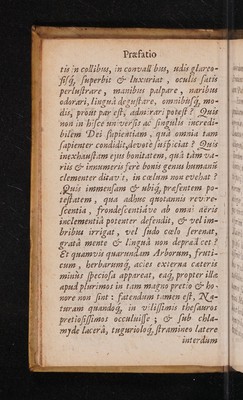 Præfatio
tis in collibus, in convallibus, udis glareo-
sisq́, superbit & luxuriat, oculis satis
perlustrare, manibus palpare, naribus
odorari, linguâ degustare, omnibusq́, mo-
dis, prout par est, admirari potest? Quis
non in hisce universis ac singulis incredi-
bilem Dei sapientiam, quâ omnia tam
sapienter condidit, devotè suspiciat? Quis
inexhaustam ejus bonitatem, quâ tàm va-
riis & innumeris ferè bonis genus humanũ
clementer ditavit, in cœlum non evehat?
Quis immensam & ubiq́, præsentem po-
testatem, quâ adhuc quotannis revire-
scentia, frondescentiáve ab omni aëris
inclementiâ potenter defendit, & vel im-
bribus irrigat, vel sudo cœlo serenat,
gratâ mente & linguâ non deprædicet?
Et quamvis quarundam Arborum, fruti-
cum, herbarumq́, acies externa cæteris
minùs speciosa appareat, eaq́, propter illa
apud plurimos in tam magno pretio & ho-
nore non sint: fatendum tamen est, Na-
turam quandoq́, in vilissimis thesauros
pretiosissimos occuluisse; & sub chla-
myde lacerâ, tugurioloq́, stramineo latere
interdum